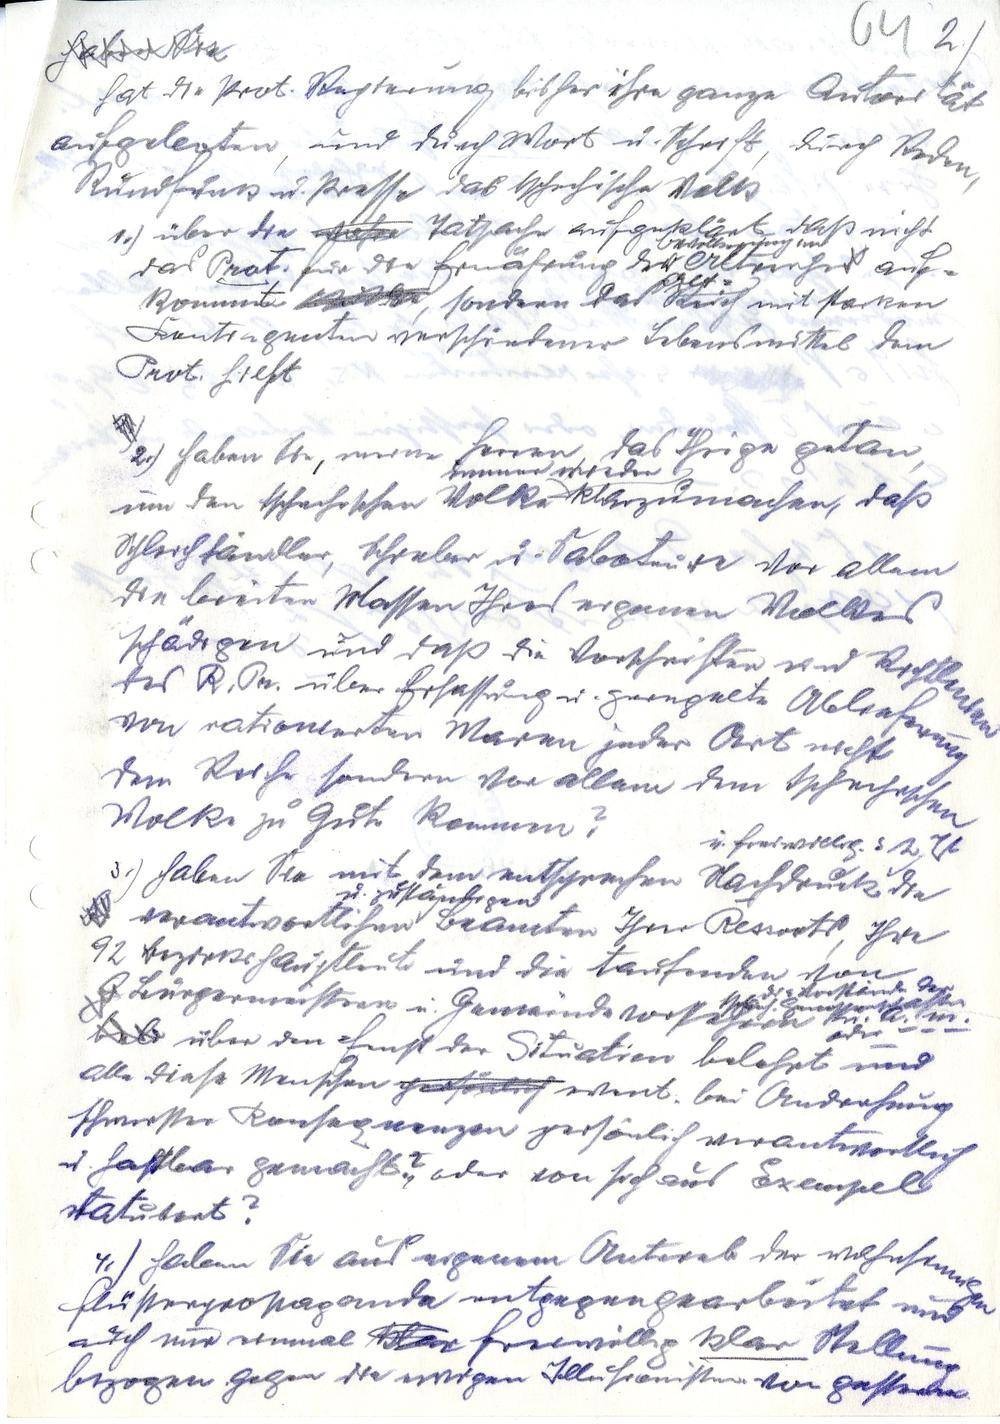 64 2/
Haben Sie
hat die Prot. Regierung bisher ihre ganze Autorität
aufgeboten, und durch Wort u. Schrift, durch Reden,
Rundfunk u. Presse das tschechische Volk
1.) über die Tatsache aufgeklärt, daß nicht
das Prot. für die Ernährung der auf-
kommt, sondern das Reich mit starken
Kontingenten verschiedener Lebensmittel dem
Prot. hilft
2.) haben Sie, meine Herren, das Ihrige getan,
immer wieder
um dem tschechischen Volke klarzumachen, daß
Schleichhändler, Schieber u. Saboteure vor allem
die breiten Massen Ihres eigenen Volkes
schädigen und daß die Vorschriften und Richtlinien
des R. Pr. über Erfassung u. geregelte Ablieferung
von rationierten Waren jeder Art nicht
dem Reiche sondern vor allem dem tschechischen
Volke zu Gute kommen?
u. freiwillig
3.) haben Sie mit dem entsprechen Nachdruck die
u. zuständigen
verantwortlichen Beamten Ihrer Ressorts, Ihre
92 Bezirkshauptleute und die taufenden von
die Vorstände der
Bürgermeistern u. Gemeindevorstehern
oder
über den Ernst der Situation belehrt und
alle diese Menschen persönlich event. bei Androhung
schwerster Konsequenzen persönlich verantwortlich
u. haftbar gemacht? oder von sich aus Exempel
statuiert?
4.) haben Sie aus eigenem Antrieb der wahnsinnigen
Flüsterpropaganda entgegengearbeitet und
auch nur einmal freiwillig klar Stellung
bezogen gegen die ewigen Illusionisten von gestern